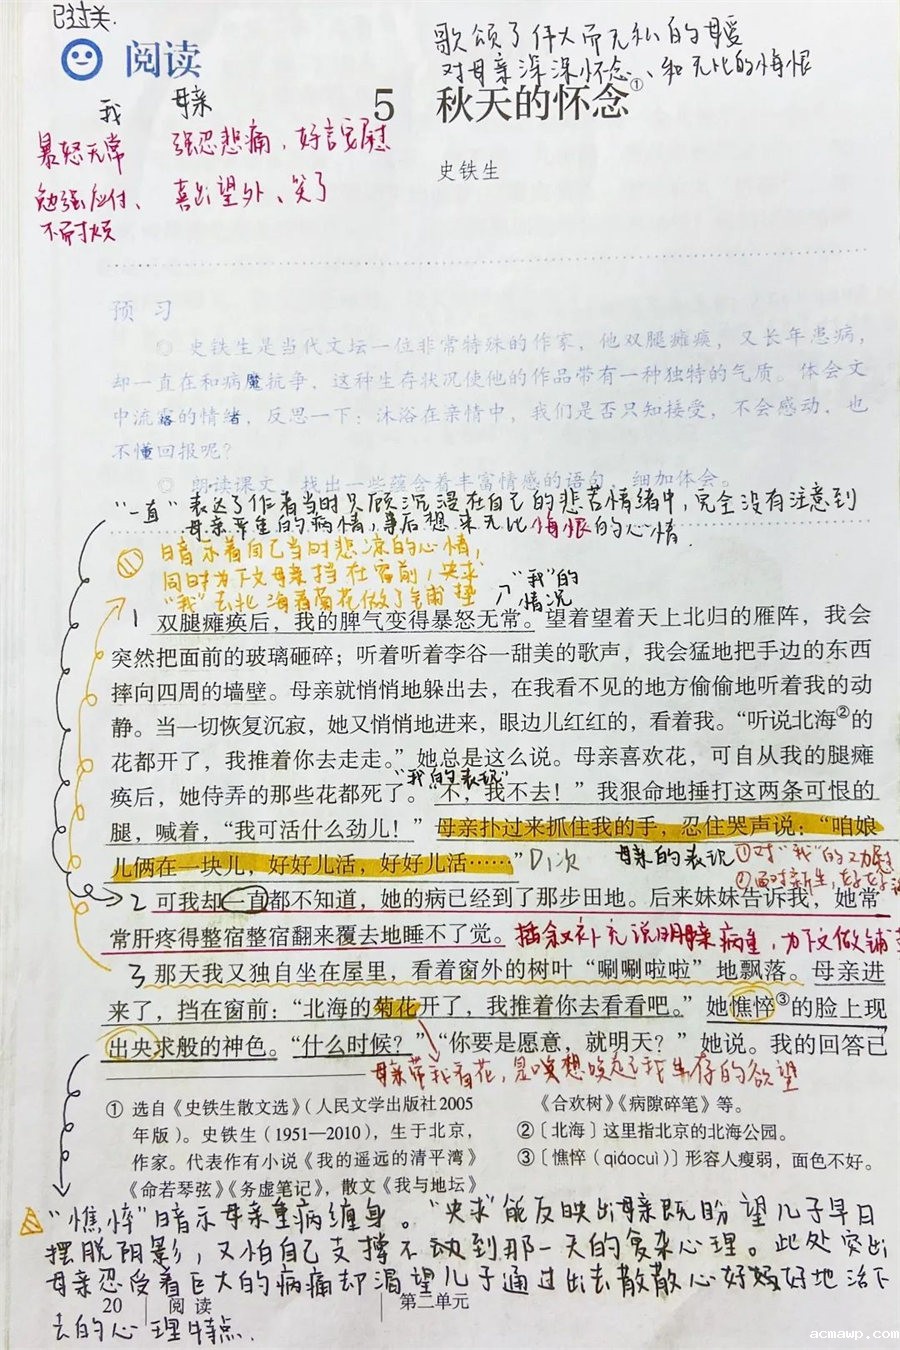 已过关.
阅读
歌颂了伟大而无私的母爱
对母亲深深怀念、和无比的悔恨
我 母亲
5 秋天的怀念①
暴怒无常 强忍悲痛,好言安慰
史铁生
勉强应付、 喜出望外、笑了
不耐烦
预 习
◎ 史铁生是当代文坛一位非常特殊的作家，他双腿瘫痪，又长年患病，
却一直在和病魔抗争，这种生存状况使他的作品带有一种独特的气质。体会文
中流露的情绪，反思一下：沐浴在亲情中，我们是否只知接受，不会感动，也
不懂回报呢？
◎ 朗读课文，找出一些蕴含着丰富情感的语句，细加体会。
"一直"表达了作者当时只顾沉浸在自己的悲苦情绪中,完全没有注意到
母亲严重的病情,事后想来无比悔恨的心情.
暗示着自己当时悲凉的心情,
同时为下文母亲挡在窗前,央求
"我"去北海看菊花做了铺垫
"我"的
情况
1 双腿瘫痪后，我的脾气变得暴怒无常。望着望着天上北归的雁阵，我会
突然把面前的玻璃砸碎；听着听着李谷一甜美的歌声，我会猛地把手边的东西
摔向四周的墙壁。母亲就悄悄地躲出去，在我看不见的地方偷偷地听着我的动
静。当一切恢复沉寂，她又悄悄地进来，眼边儿红红的，看着我。“听说北海②的
花都开了，我推着你去走走。”她总是这么说。母亲喜欢花，可自从我的腿瘫
"我的表现"
痪后，她侍弄的那些花都死了。“不，我不去！”我狠命地捶打这两条可恨的
腿，喊着，“我可活什么劲儿！”母亲扑过来抓住我的手，忍住哭声说：“咱娘
儿俩在一块儿，好好儿活，好好儿活……” 1次 母亲的表现 ①对"我"的
②面对新生,好好
2 可我却一直都不知道，她的病已经到了那步田地。后来妹妹告诉我，她常
常肝疼得整宿整宿翻来覆去地睡不了觉。 插叙补充说明母亲病重,为下文做铺
3 那天我又独自坐在屋里，看着窗外的树叶“唰唰啦啦”地飘落。母亲进
来了，挡在窗前：“北海的菊花开了，我推着你去看看吧。”她憔悴③的脸上现
出央求般的神色。“什么时候？”“你要是愿意，就明天？”她说。我的回答已
母亲带我看花,是想唤起我生存的欲望
① 选自《史铁生散文选》（人民文学出版社2005
年版）。史铁生（1951—2010），生于北京，
作家。代表作有小说《我的遥远的清平湾》
《命若琴弦》《务虚笔记》，散文《我与地坛》
《合欢树》《病隙碎笔》等。
②〔北海〕这里指北京的北海公园。
③〔憔悴（qiáocuì）〕形容人瘦弱，面色不好。
"憔悴"暗示母亲重病缠身。"央求"能反映出母亲既盼望儿子早日
摆脱阴影,又怕自己支撑不动到那一天的复杂心理。此处突出
母亲忍受着巨大的病痛却渴望儿子通过出去散散心好好地活下
去的心理特点.
20 阅 读 第二单元
acmawp.com